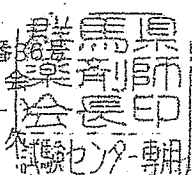 群馬県
薬剤師
会長印
試験センター専用